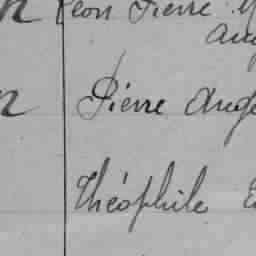 n Léon Pierre
n Pierre Ange
Théophile